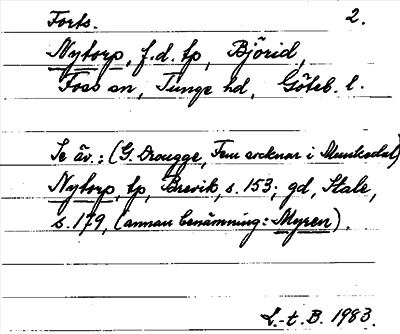 Forts. 2.
Nytorp, f.d. tp, Björid,
Foss sn, Tunge hd, Göteb. l.
Se äv.: (G. Drougge, Fem socknar i Munkedal)
Nytorp, tp, Brevik, s. 153; gd, Stale,
s. 179, (annan benämning: Myren).
L.-t. B. 1983.